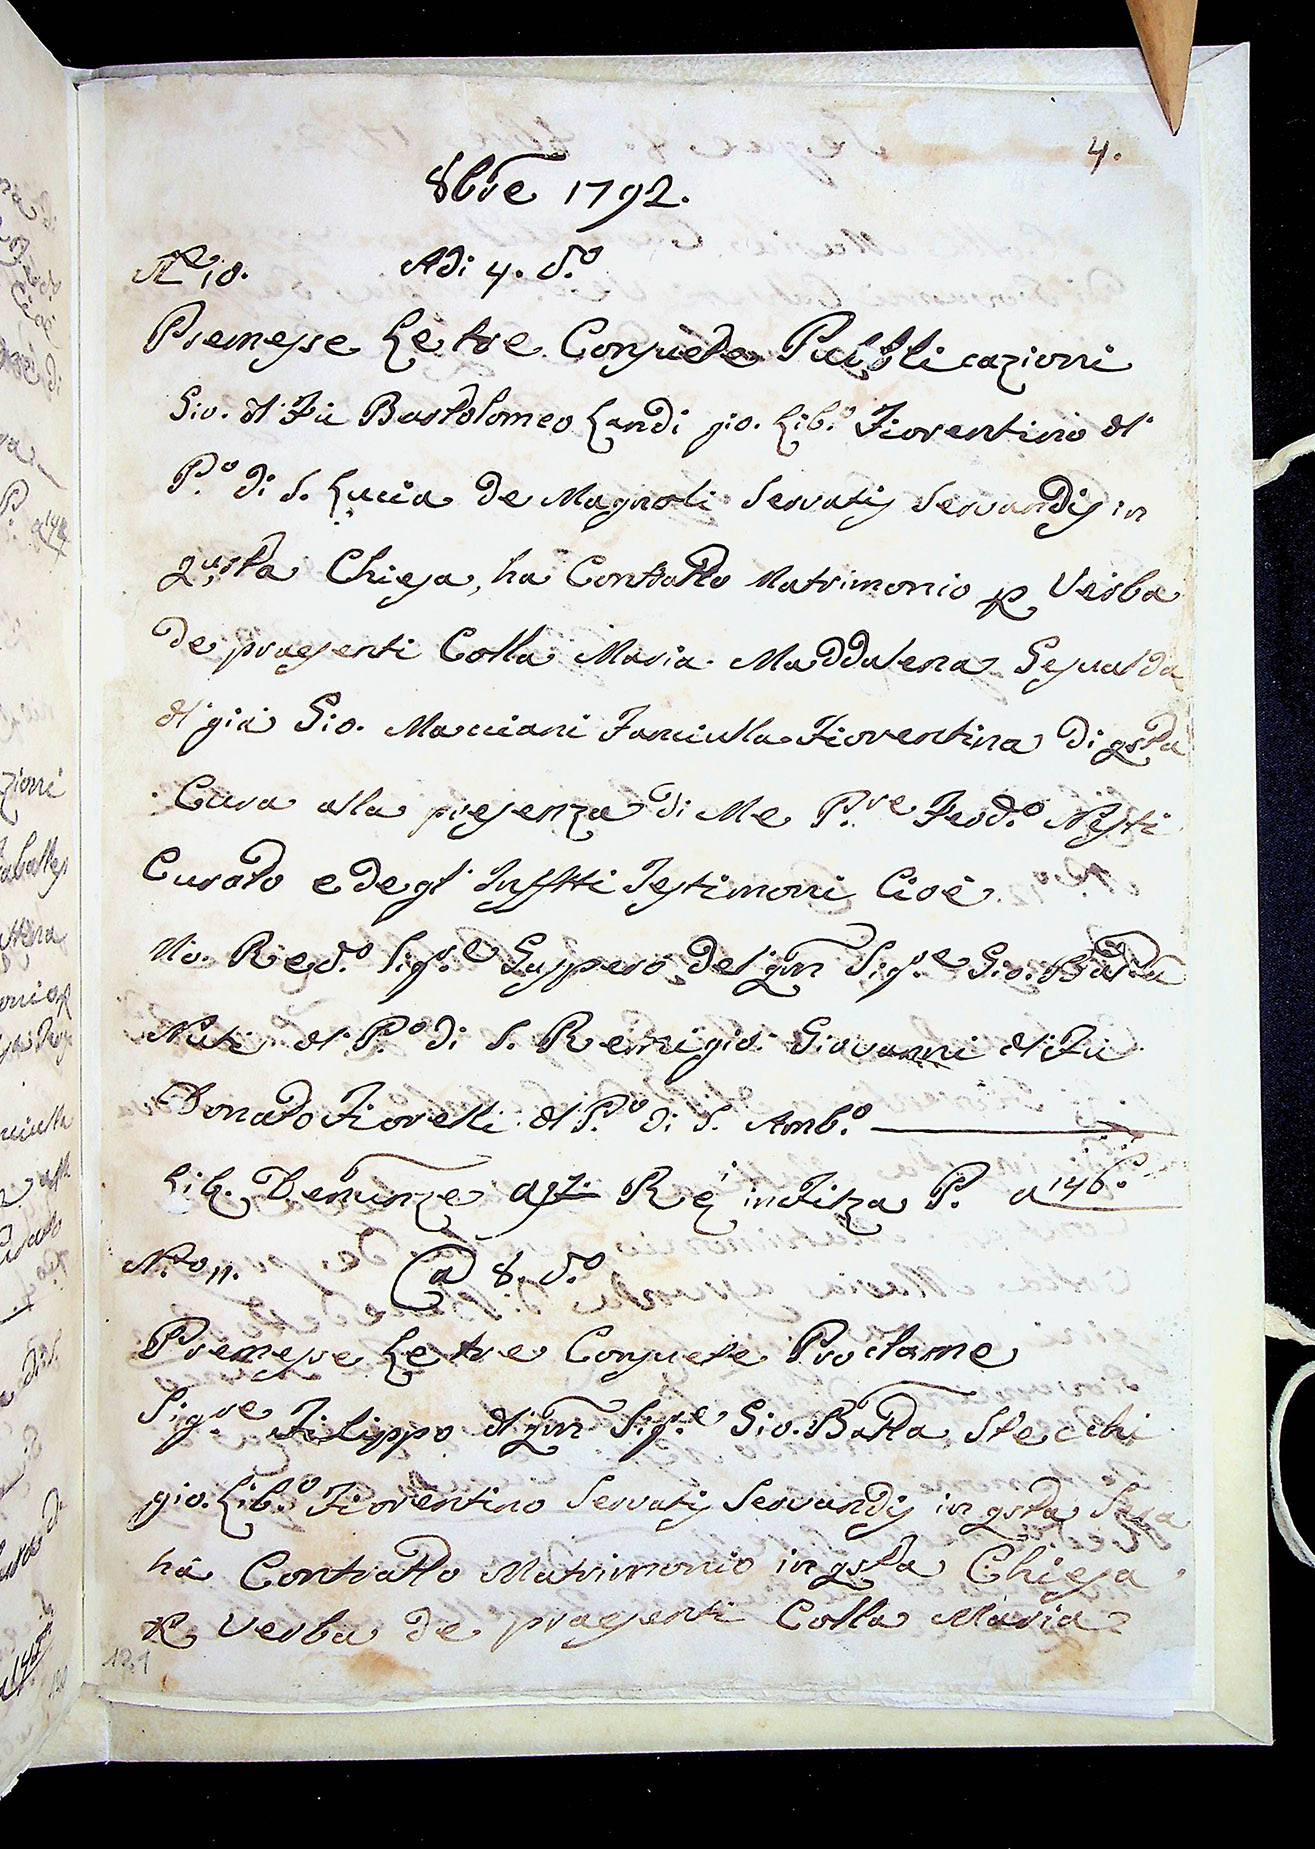 4.
8bre 1792.
No 10. Adi 4. do
Premesse Le tre Consuete Pubblicazioni
Gio. dl Fu Bartolomeo Landi gio. Lib.o Fiorentino dl
P.o di S. Lucia de Magnoli Servatis Servandis in
qusta Chiesa, ha Contratto Matrimonio p Verba
de praesenti Colla Maria Maddalena Gesualda
dl già Gio. Macciani Fanciulla Fiorentina di qsta
Cura alla presenza di Me P.re Feod.o Nesti
Curato e degl' Infftti Testimoni Cioè
No. Re d.o Sig.re Gasspero del qm Sig.re Gio. Batta
Nuti dl P.o di S. Remigio Giovanni dl Fu
Donato Fiorelli dl P.o di S. Amb.o
Lib. Denunze a 97. R è in Filza P. a 146.
N.ro 11. a 8. d.o
Premesse Le tre Consuete Proclame
Sig.re Filippo dl qm Sig.re Gio. Batta Stecchi
gio. Lib.o Fiorentino Servatis Servandis in qsta
ha Contratto Matrimonio in qsta Chiesa
p Verba de praesenti Colla Maria
121